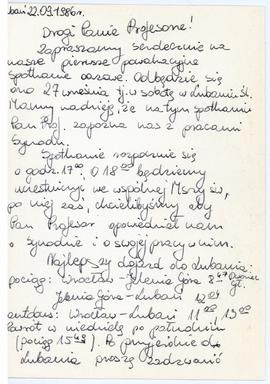 bań 22.09.1986r.
Drogi Panie Profesorze!
Zapraszamy serdecznie na
nasze pierwsze powakacyjne
Spotkanie oazowe. Odbędzie się
ono 27 września tj. w sobotę w Lubaniu Śl.
Mamy nadzieję, że na tym spotkaniu
Pan Prof. zapozna nas z pracami
Synodu.
Spotkanie rozpocznie się
o godz. 17⁰⁰. O 18⁰⁰ będziemy
uczestniczyć we wspólnej Mszy św,
po niej zaś, chcielibyśmy aby
Pan Profesor opowiedział nam
o Synodzie i o swojej pracy w nim.
Najlepszy dojazd do Lubania:
pociąg: Wrocław-Jelenia Góra 8⁴⁹ Gł.
Jelenia Góra-Lubań 12²⁴
autobus: Wrocław-Lubań 11⁰⁰, 15⁰⁰
Powrót w niedzielę po południu
(pociąg 15⁴⁸). Po przyjeździe do
Lubania proszę zadzwonić